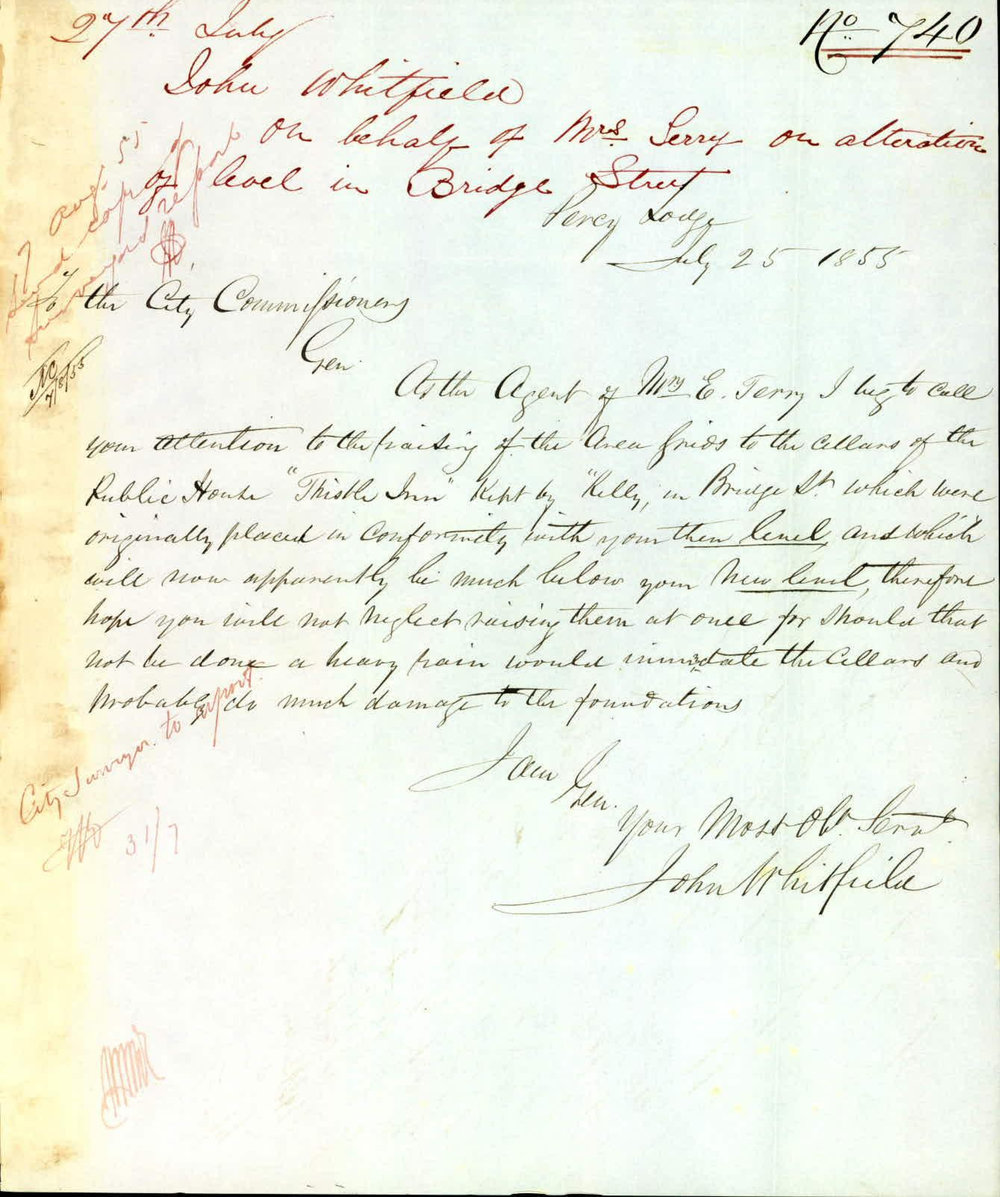 27th July
No 740
John Whitfield
on behalf of Mrs. Terry on alteration
of level in Bridge Street
17 Aug. 55
Send copy of
Surveyors report
Percy Lodge
July 25 1855
To the City Commissioners
Gen
7/8/55
As the Agent of Mrs E. Terry I beg to call
your attention to the raising of the Area Grids to the Cellars of the
Public House "Thistle Inn" Kept by "Kelly, in Bridge St. which were
originally placed in conformity with your then level, and which
will now apparently be much below your New level, therefore
hope you will not neglect raising them at once for should that
not be done a heavy rain would inundate the Cellars and
probably do much damage to the foundations
City Surveyor to report.
31/7
I am
Gen.
Your Most Obt. Servt
John Whitfield